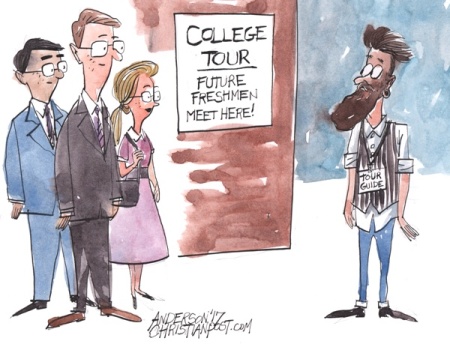 COLLEGE
TOUR
FUTURE
FRESHMEN
MEET HERE!
TOUR
GUIDE
ANDERSON '17
CHRISTIANPOST.COM